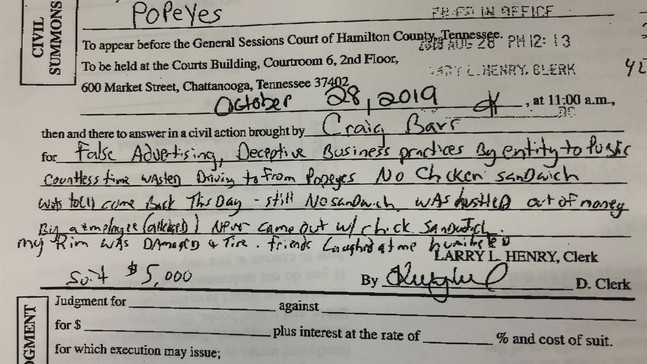 POPEYES
FILED IN OFFICE
CIVIL SUMMONS
To appear before the General Sessions Court of Hamilton County, Tennessee.
2019 AUG 28 PM 12: 13
To be held at the Courts Building, Courtroom 6, 2nd Floor,
LARRY L. HENRY, CLERK
600 Market Street, Chattanooga, Tennessee 37402
October 28, 2019, at 11:00 a.m.,
then and there to answer in a civil action brought by Craig Barr
for False Advertising, Deceptive Business practices By entity to Public
Countless time wasted Driving to from Popeyes No Chicken sandwich
was told come Back This Day - still No sandwich was hustled out of money
Big employee (alleged) Never came out w/ chick Sandwich.
my Rim was Damaged & Tire. friends Laughed at me
LARRY L. HENRY, Clerk
Suit $5,000
By D. Clerk
JUDGMENT
Judgment for against
for $ plus interest at the rate of % and cost of suit.
for which execution may issue;